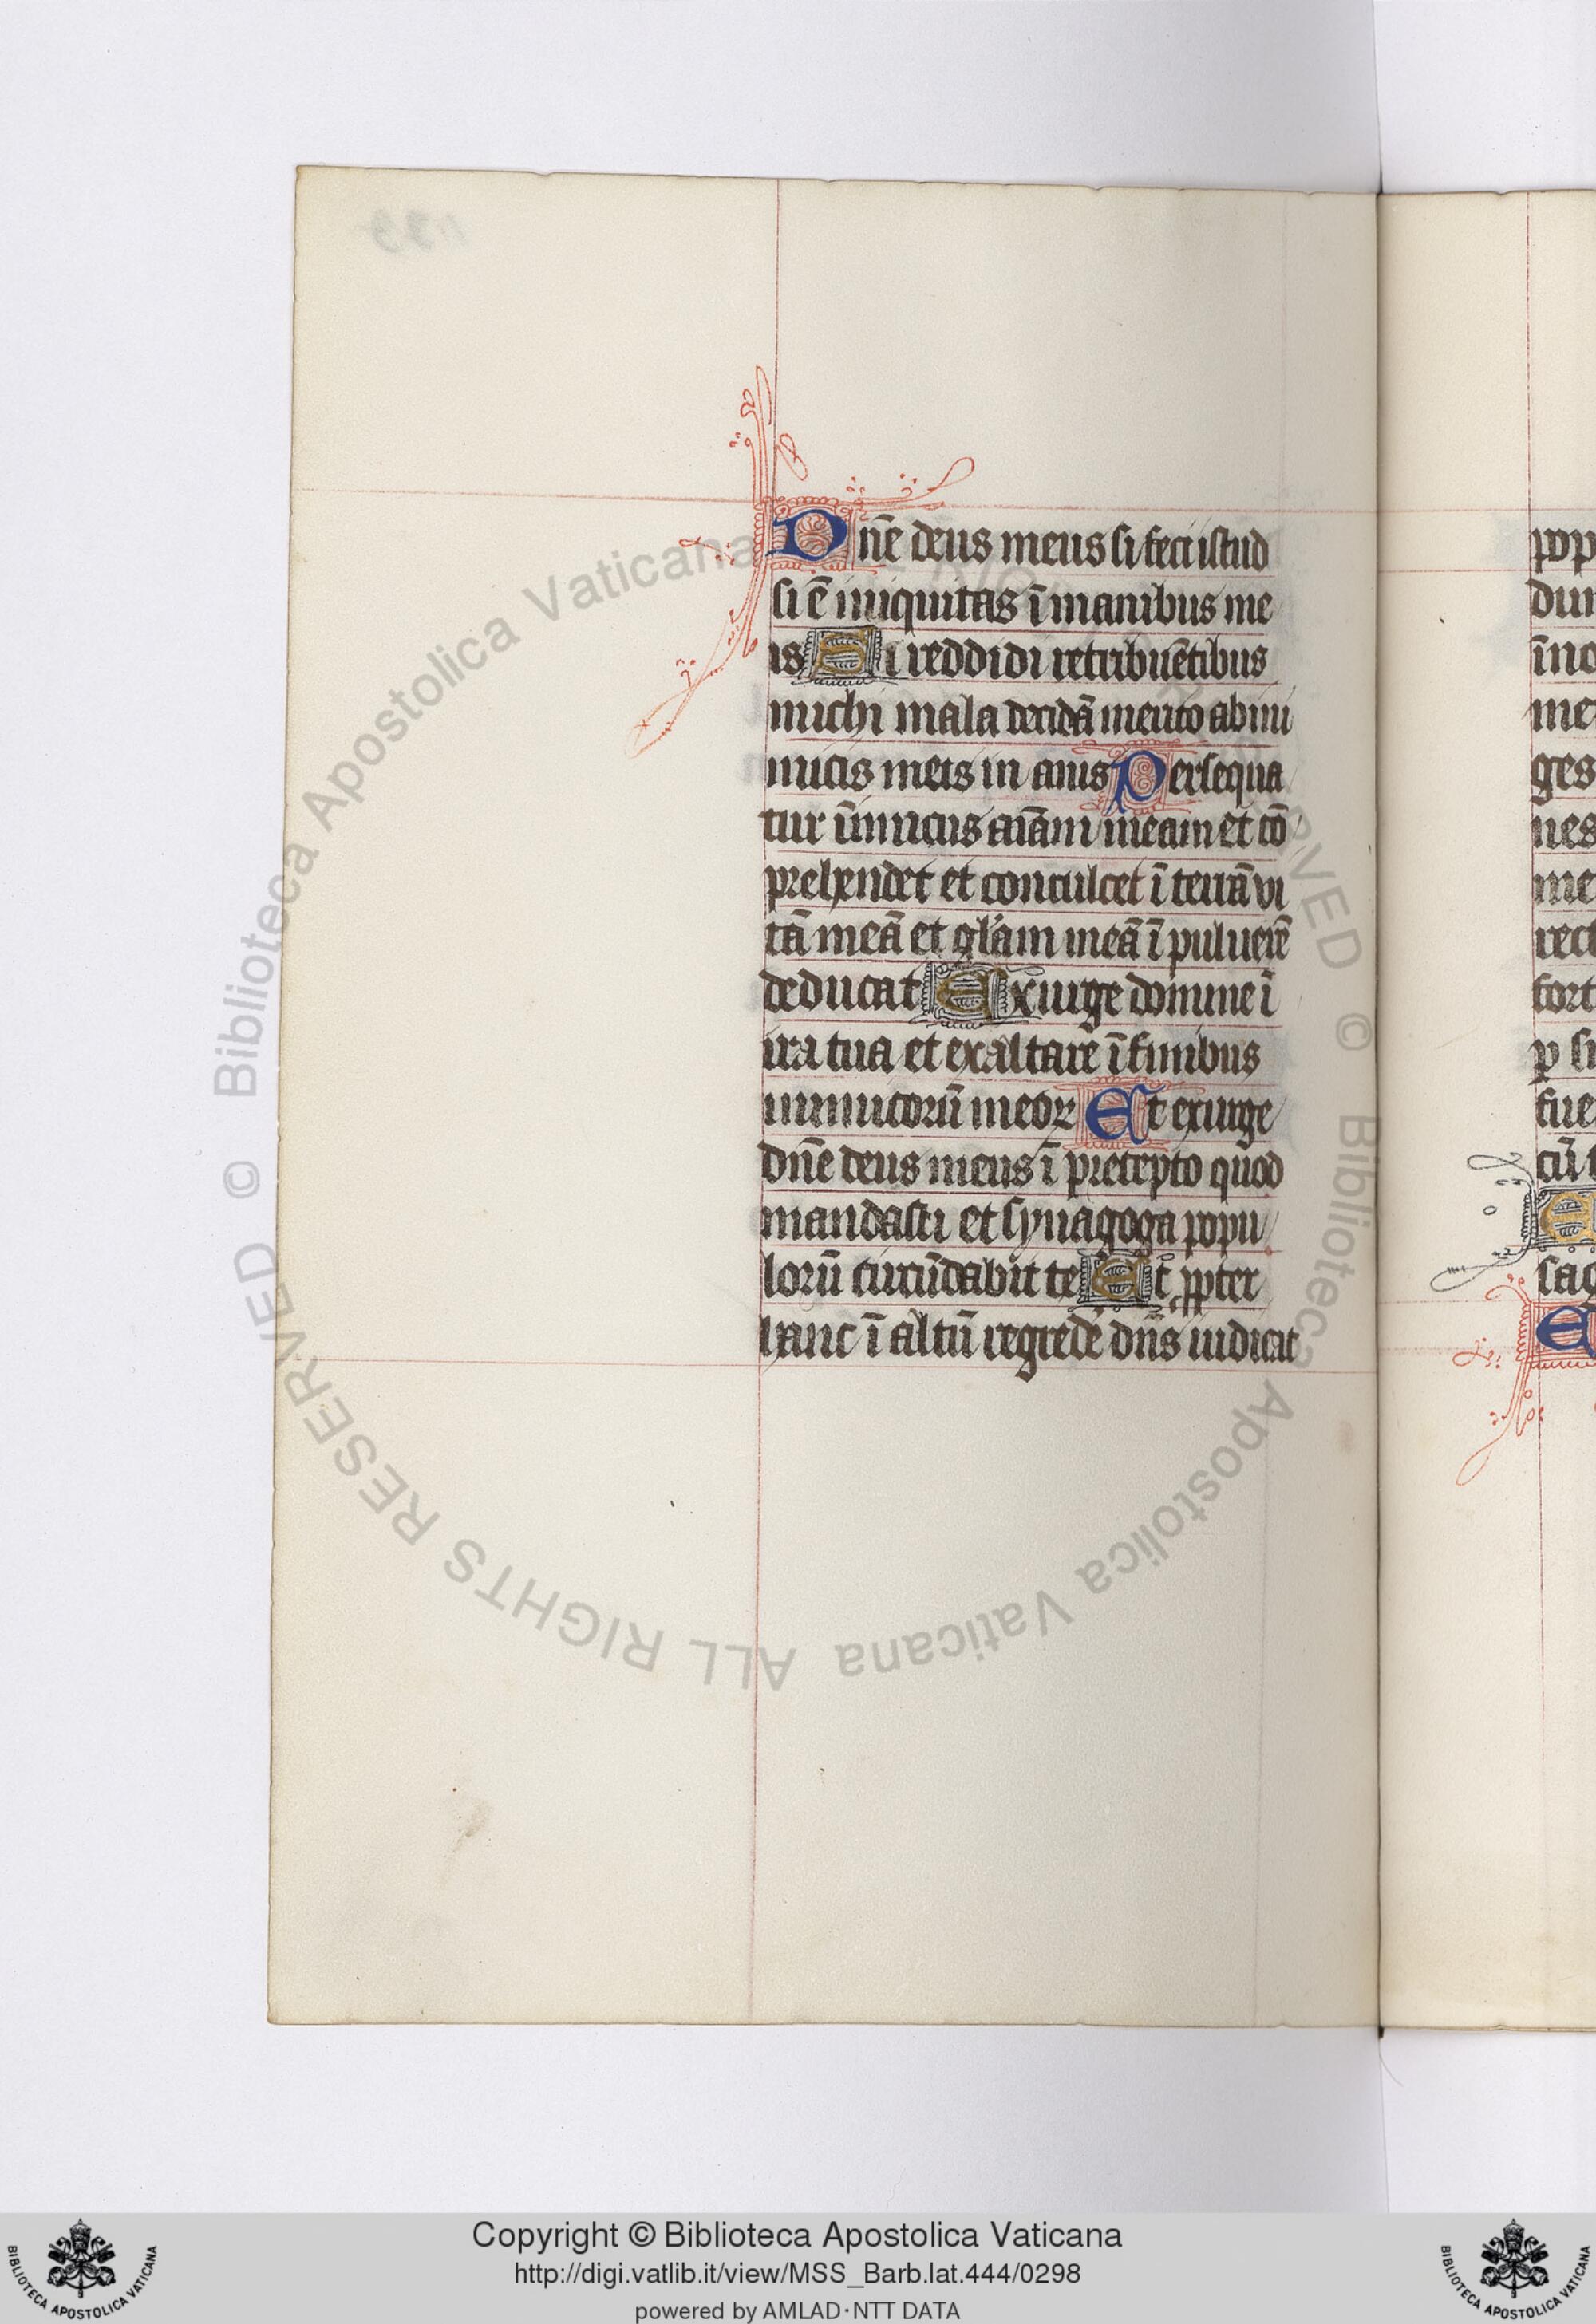 Dn̄e deus meus si feci istud
si ē iniquitas ī manibus me
is Si reddidi retribuētibus
michi mala decidā merito ab ini
micis meis in anis Persequa
tur īimicus aīam meam et cō
prehendet et conculcet ī terrā vi
tā meā et gl'am meā ī puluerē
deducat Exurge domine ī
ira tua et exaltare ī finibus
inimicorū meoꝝ Et exurge
dn̄e deus meus ī precepto quod
mandasti et synagoga popu
lorū circūdabit te Et ꝓpter
hanc ī altū regredē dn̄s iudicat
pop
dui
īno
me
ges
nes
me
rect
fort
p si
fue
cū t
E
sag
E
Biblioteca Apostolica Vaticana © Biblioteca Apostolica Vaticana ALL RIGHTS RESERVED ©
Copyright © Biblioteca Apostolica Vaticana
http://digi.vatlib.it/view/MSS_Barb.lat.444/0298
powered by AMLAD·NTT DATA
BIBLIOTECA APOSTOLICA VATICANA
BIBLIOTECA APOSTOLICA VATICANA